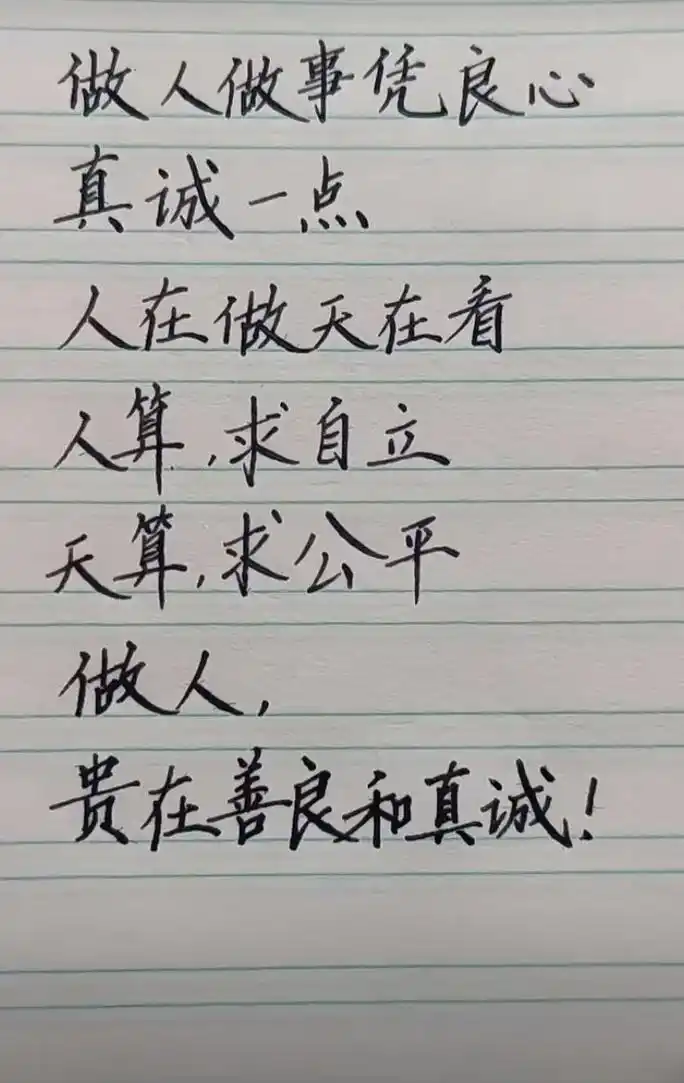 做人做事凭良心
真诚一点
人在做天在看
人算,求自立
天算,求公平
做人,
贵在善良和真诚!